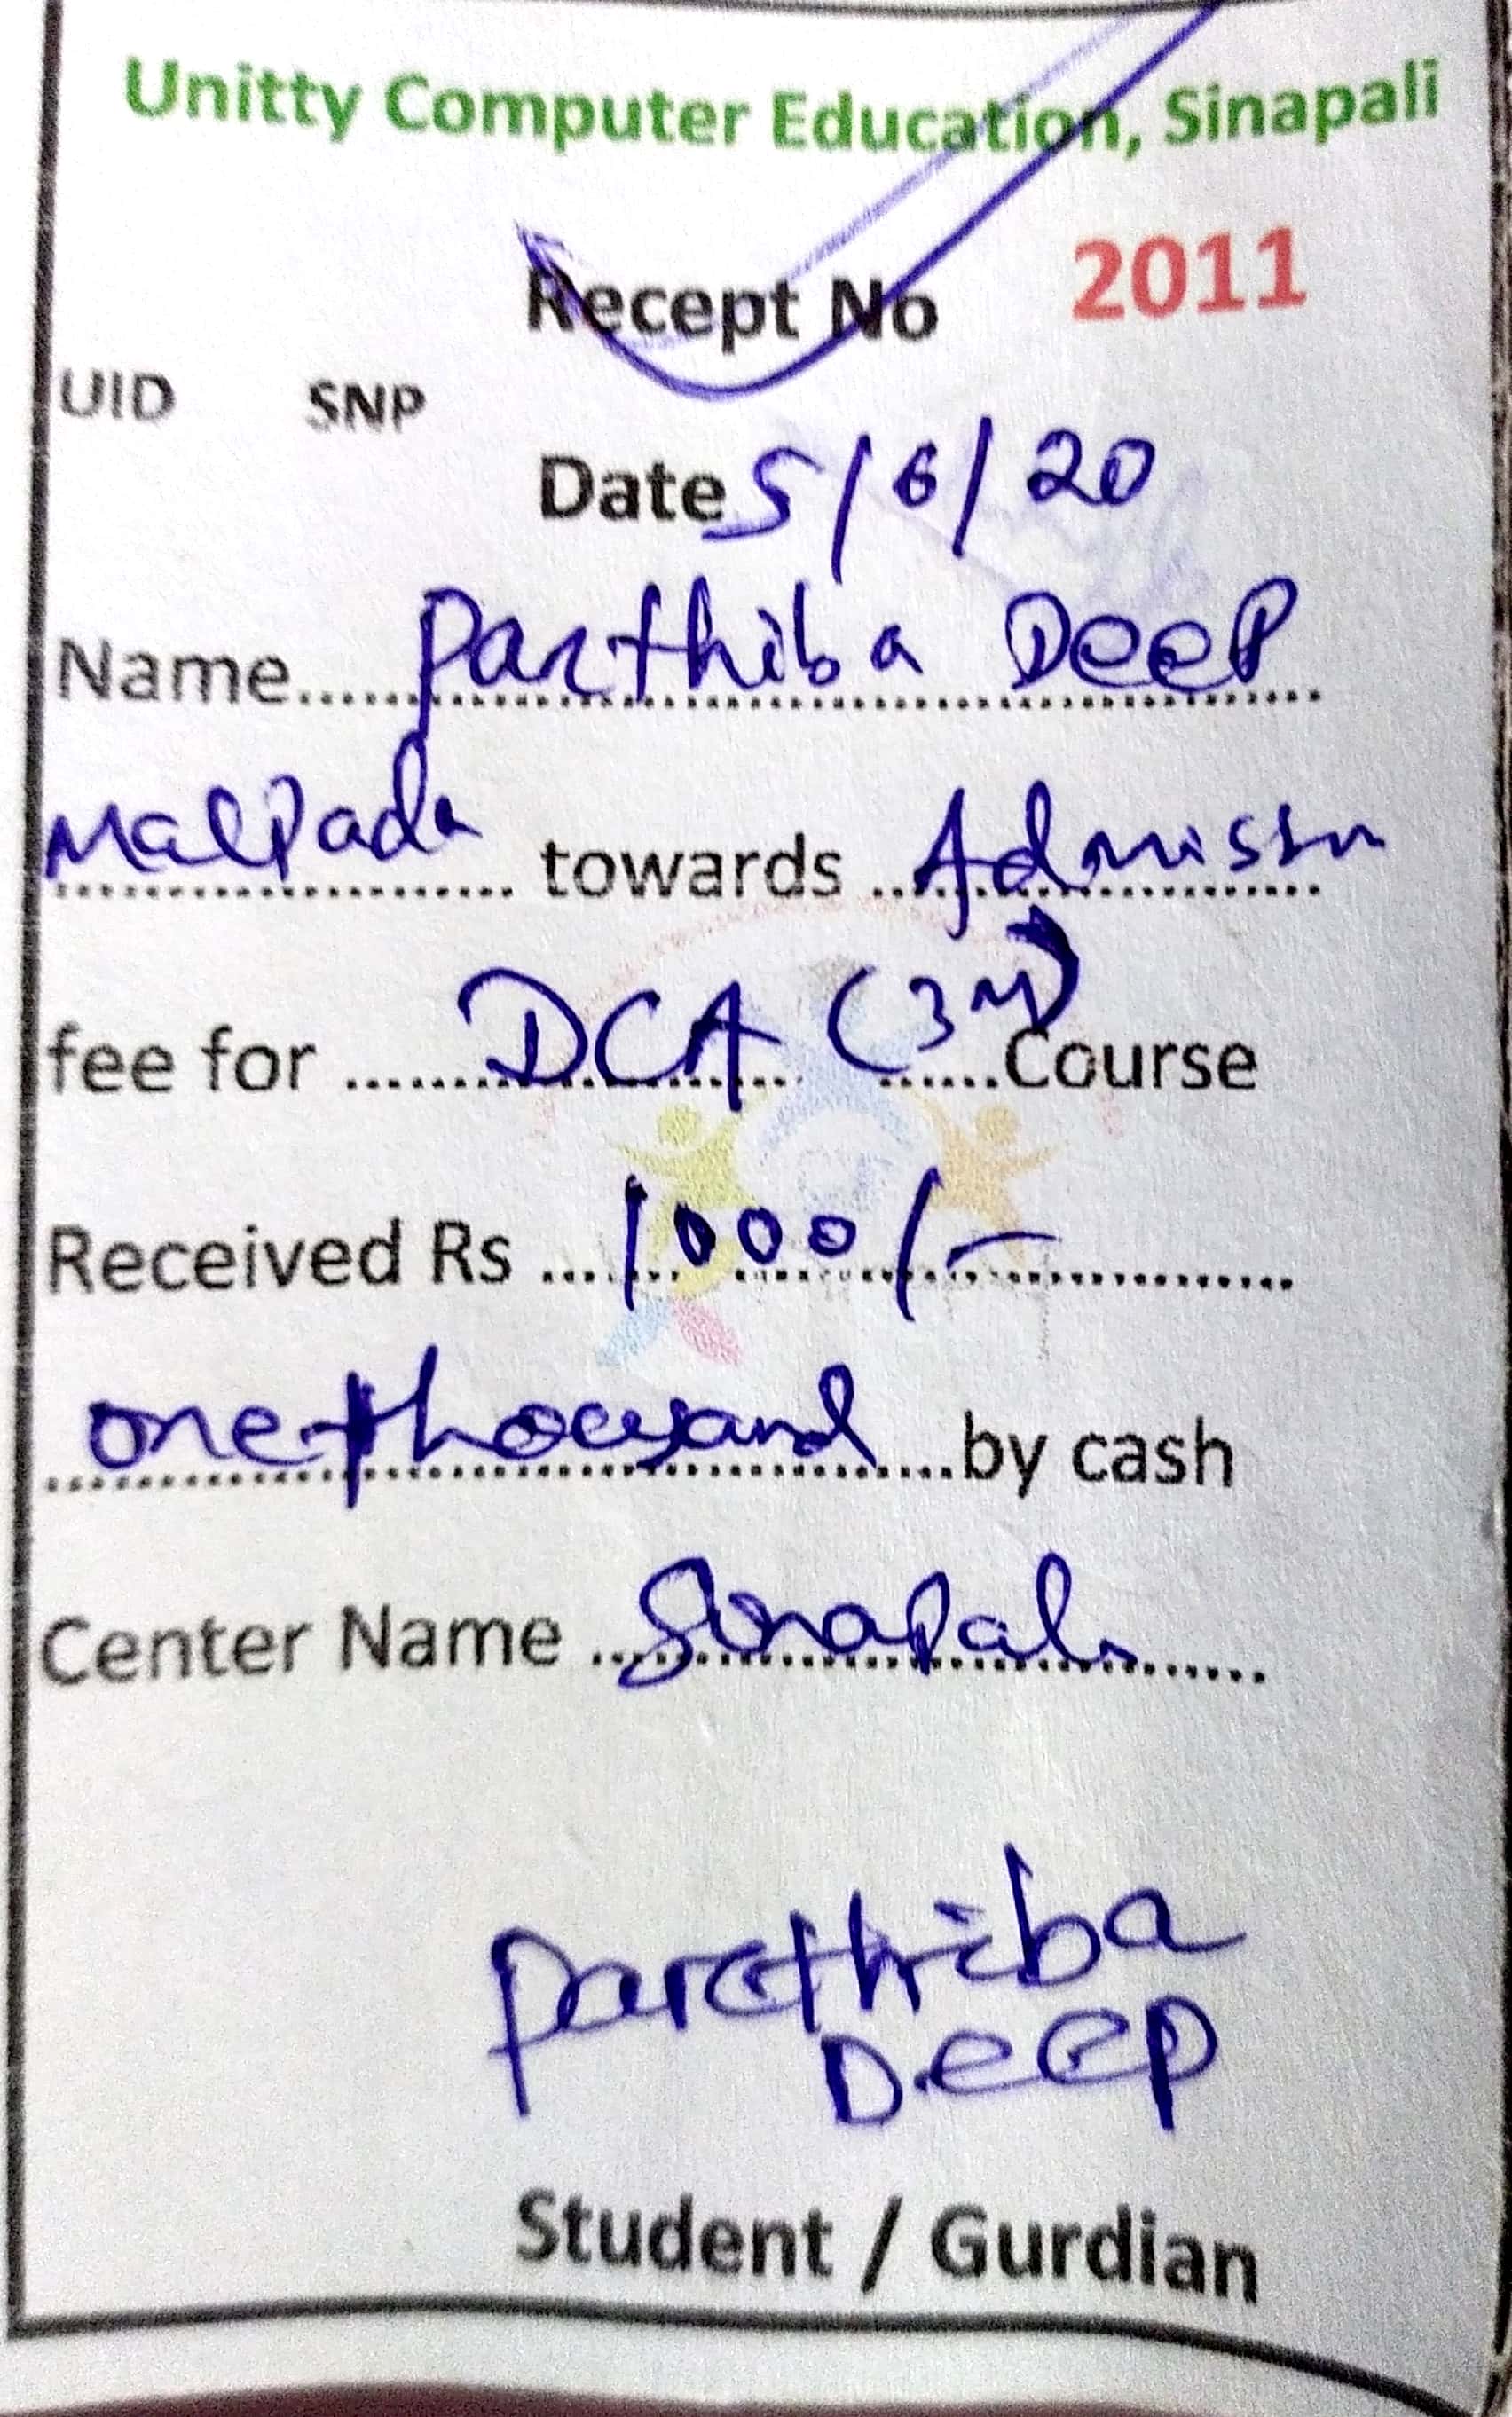 Unitty Computer Education, Sinapali
Recept No 2011
UID SNP
Date 5/6/20
Name..... Parthiba Deep
Malpada towards Admissn
fee for ..... DCA (3M) Course
Received Rs .... 1000/-
one thousand .....by cash
Center Name ... Sinapali
Parthiba
Deep
Student / Gurdian